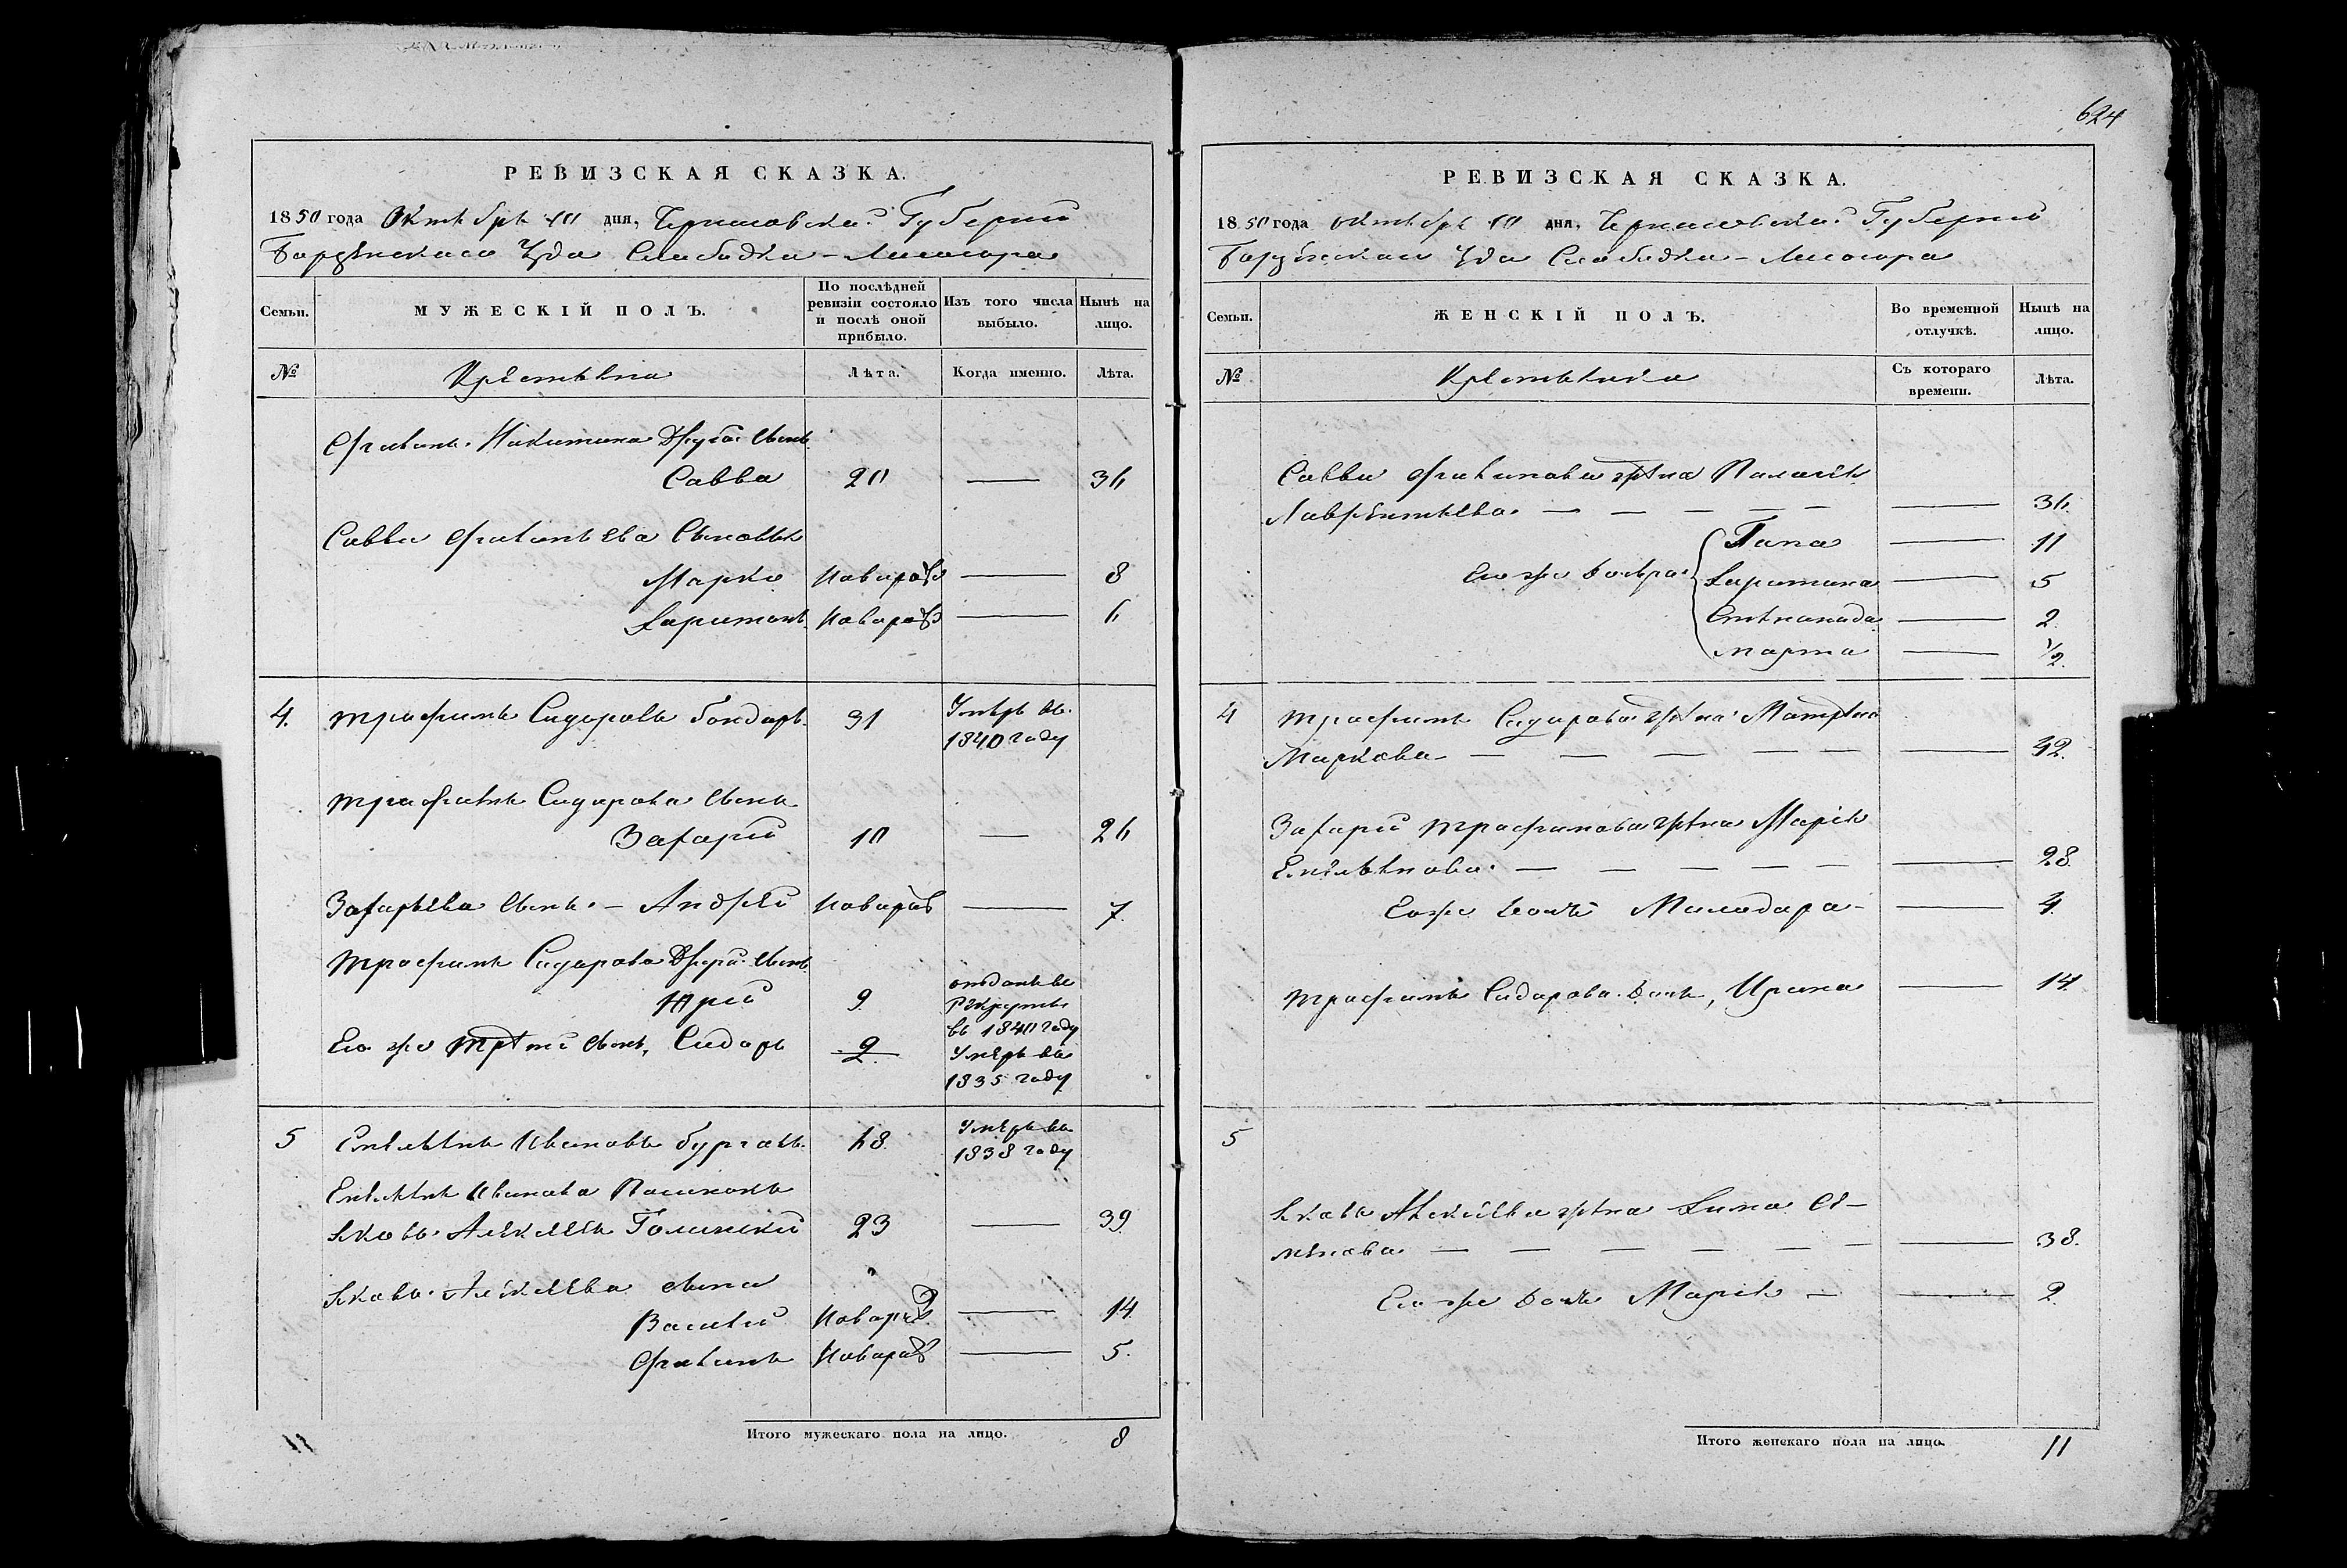 624
РЕВИЗСКАЯ СКАЗКА.
1850 года Октября 10 дня, Черниговской Губернии
Борзенскаго Уѣзда Слободки-Лисогора
Семьи. МУЖЕСКІЙ ПОЛЪ. По послѣдней ревизіи состояло и послѣ оной прибыло. Изъ того числа выбыло. Нынѣ на лицо.
№ Крестьяне Лѣта. Когда именно. Лѣта.
Никитина Другой сынъ
Савва 20 — 36
Саввы сыновья
Марко новорож — 8
Харитонъ новорож — 6
4. Трофимъ Сидоровъ Бондарь 31 Умеръ въ
1840 году
Трофима Сидорова сынъ
Захарій 10 — 26
Захарьева сынъ — Андрей новорож — 7.
Трофима Сидорова Другой сынъ
Юрій 9. отданъ въ
рекруты
въ 1840 году
Его же третій сынъ, Сидоръ 2. Умеръ въ
1835 году
5 Емельянъ Ивановъ 68. Умеръ въ
1838 году
Емельяна Иванова
Яковъ Алексеевъ Голинскій 23 — 39.
Якова Алексеева сыны
Василій новорож. — 14.
новорож — 5.
Итого мужескаго пола на лицо. 8
РЕВИЗСКАЯ СКАЗКА.
1850 года октября 10 дня, Черниговской Губерніи
Борзенскаго Уѣзда Слободки-Лисогора
Семьи. ЖЕНСКІЙ ПОЛЪ. Во временной отлучкѣ. Нынѣ на лицо.
№ Крестьянки Съ котораго времени. Лѣта.
Саввы жена Паласія
Лаврентьева — — — — — — 36.
Его же дочери — 11
Харитина — 5
Степанида — 2.
Марта — 1/2.
4 Трофима Сидорова жена Матрена
Маркова — — — — — — 42.
Захарія Трофимова жена Марія
Емельянова — — — — — — 28.
Его же дочь Миладора — — 4.
Трофима Сидорова дочь, Ирина — 14.
5
Якова Алексеева жена
— — — — — — — 38.
Его же дочь Марія — — 2.
Итого женскаго пола на лицо. 11